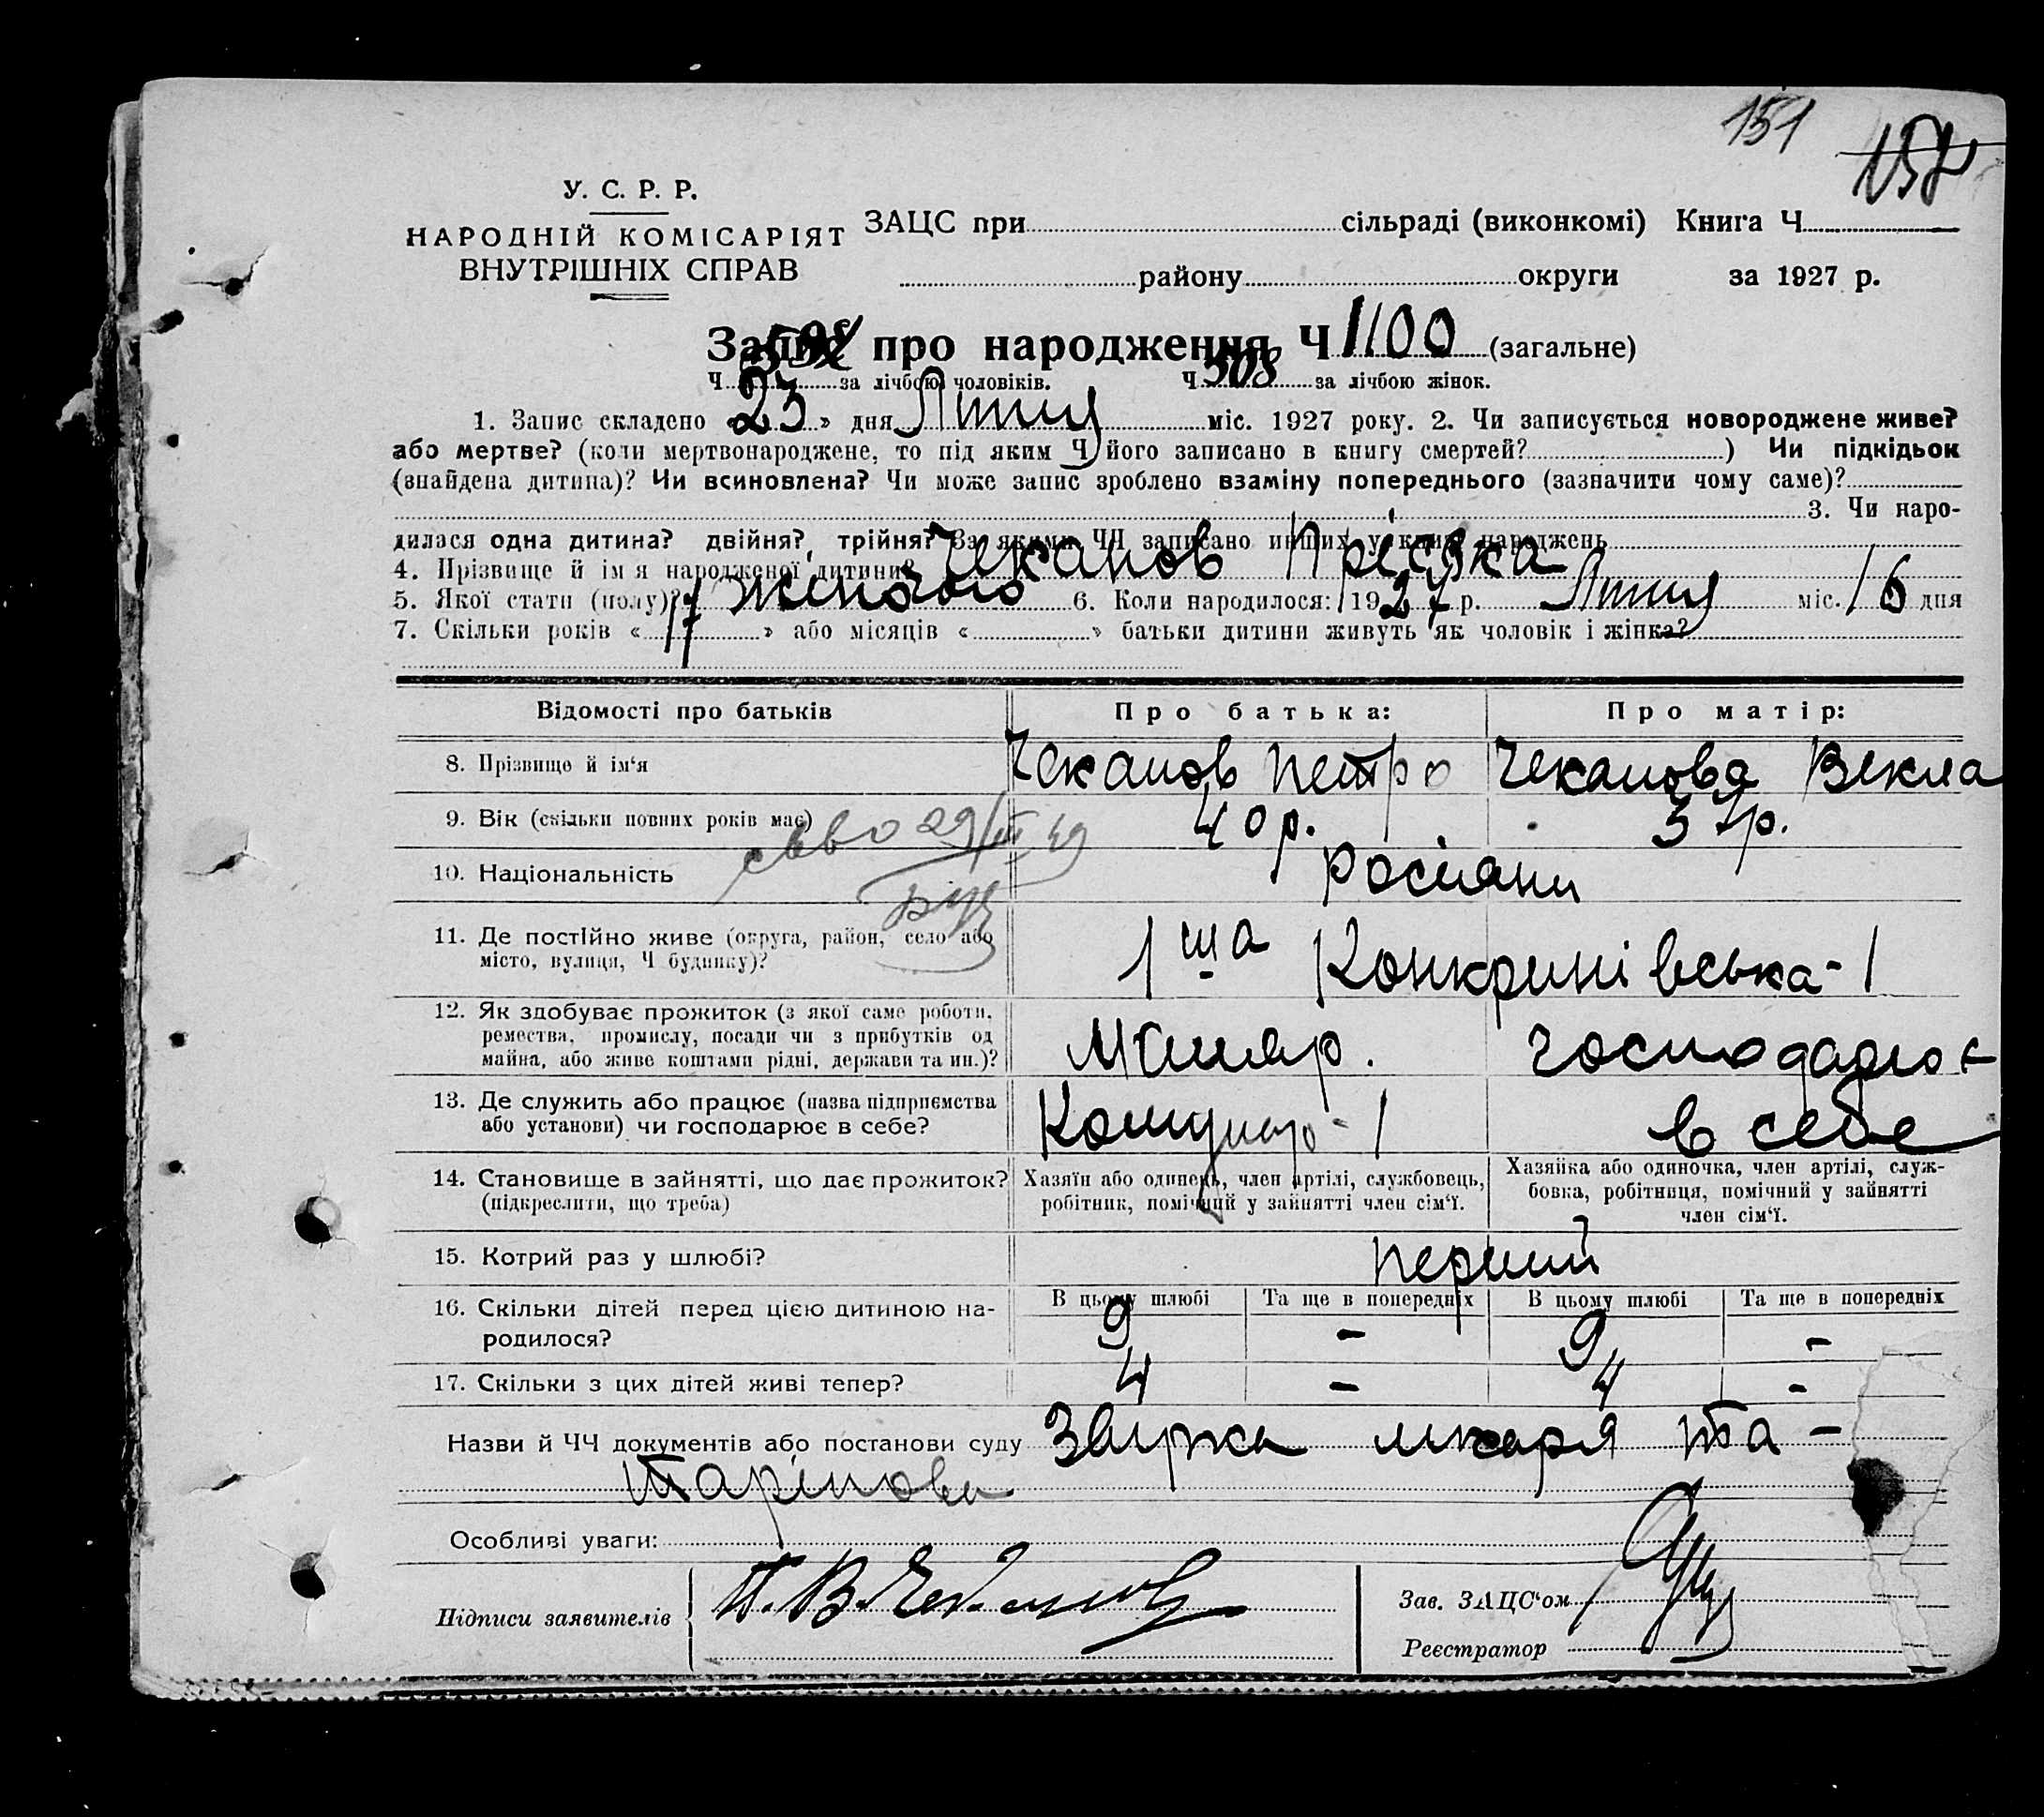 151
157
У. С. Р. Р.
НАРОДНІЙ КОМІСАРІЯТ
ВНУТРІШНІХ СПРАВ
ЗАЦС при сільраді (виконкомі) Книга Ч
району округи за 1927 р.
Запис про народження Ч 1100 (загальне)
Ч за лічбою чоловіків. Ч 508 за лічбою жінок.
1. Запис складено «23» дня Липня міс. 1927 року. 2. Чи записується новороджене живе?
або мертве? (коли мертвонароджене, то під яким Ч його записано в книгу смертей? ) Чи підкідьок
(знайдена дитина)? Чи всиновлена? Чи може запис зроблено взаміну попереднього (зазначити чому саме)?
3. Чи наро-
дилася одна дитина? двійня?, трійня? За якими ЧЧ записано инших у книзі народжень
4. Прізвище й ім'я народженої дитини? Чеканов Пріська
5. Якої стати (полу)? Жіночого 6. Коли народилося: 1927 р. Липня міс. 16 дня
7. Скільки років «17» або місяців « » батьки дитини живуть як чоловік і жінка?
Відомості про батьків Про батька: Про матір:
8. Прізвище й ім'я Чеканов Петро Чеканова Векла
9. Вік (скільки повних років має) 40 р. 37 р.
29/III 49
10. Національність росіяни
11. Де постійно живе (округа, район, село або
місто, вулиця, Ч будинку)? 1ша Конкринівська - 1
12. Як здобуває прожиток (з якої саме роботи,
ремества, промислу, посади чи з прибутків од
майна, або живе коштами рідні, держави та ин.)? Маляр. господарює
13. Де служить або працює (назва підприємства
або установи) чи господарює в себе? в себе
14. Становище в зайнятті, що дає прожиток?
(підкреслити, що треба)
Хазяїн або одинець, член артілі, службовець,
робітник, помічний у зайнятті член сім'ї.
Хазяйка або одиночка, член артілі, служ-
бовка, робітниця, помічний у зайнятті
член сім'ї.
15. Котрий раз у шлюбі? перший
16. Скільки дітей перед цією дитиною на-
родилося?
В цьому шлюбі Та ще в попередніх В цьому шлюбі Та ще в попередніх
9 - 9 -
17. Скільки з цих дітей живі тепер? 4 - 4 -
Назви й ЧЧ документів або постанови суду лікаря та -
Особливі уваги:
Підписи заявителів П. В. Чеканов
Зав. ЗАЦС'ом
Реєстратор